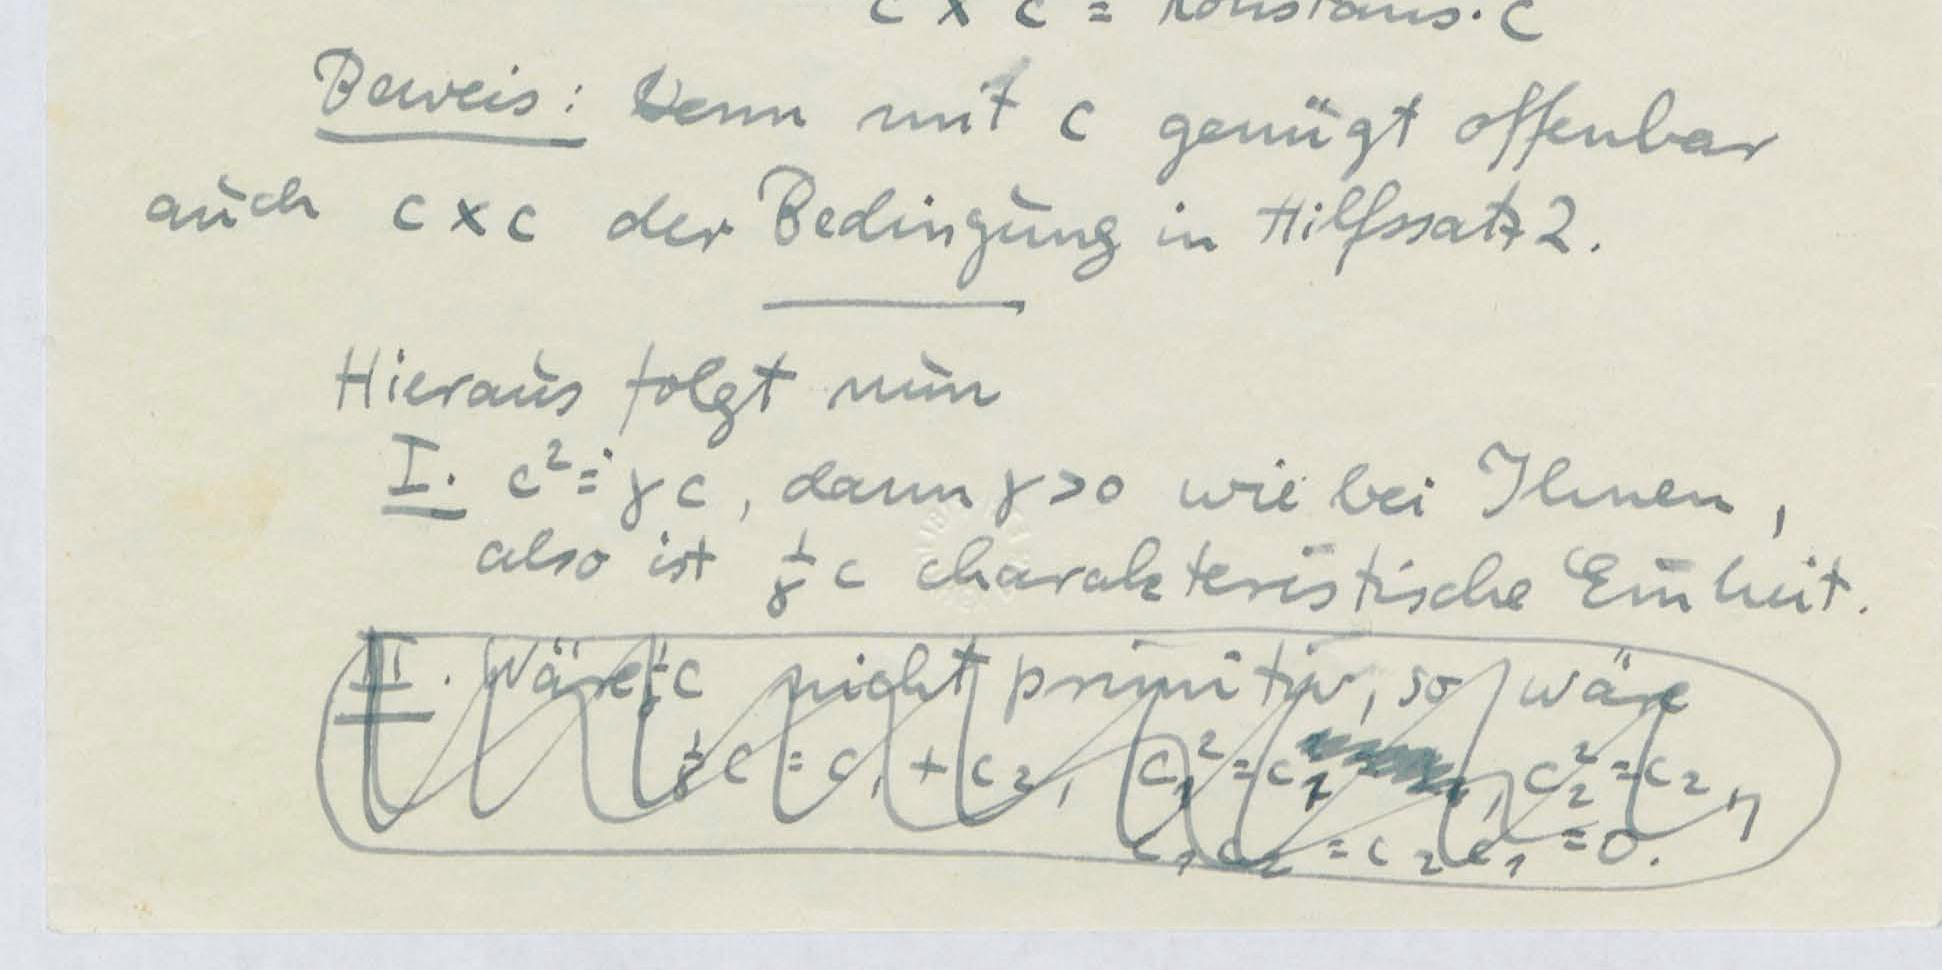 c × c = Konstans · c
Beweis: Denn mit c genügt offenbar
auch c × c der Bedingung in Hilfssatz 2.
Hieraus folgt nun
I. c² = γ c, dann γ > 0 wie bei Ihnen,
also ist 1/γ c charakteristische Einheit.
II. Wäre 1/γ c nicht primitiv, so wäre
1/γ c = c₁ + c₂, c₁² = c₁, c₂² = c₂,
c₁c₂ = c₂c₁ = 0.